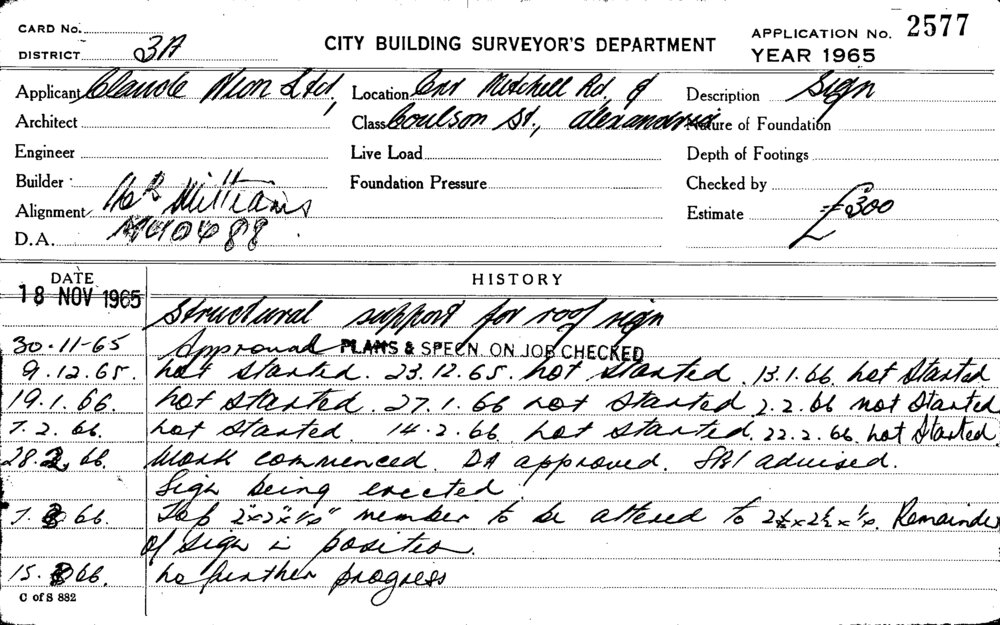 CARD No.
DISTRICT 3A
CITY BUILDING SURVEYOR'S DEPARTMENT
APPLICATION No. 2577
YEAR 1965
Applicant Claude Neon Ltd,
Location Cnr Mitchell Rd, &
Description Sign
Architect
Class Coulson St., Alexandria
Nature of Foundation
Engineer
Live Load
Depth of Footings
Builder
Foundation Pressure
Checked by
Alignment Williams
Estimate £300
D.A.
DATE
HISTORY
18 NOV 1965
Structural support for roof sign
30.11.65 Approval PLANS & SPECN. ON JOB CHECKED
9.12.65. Not started. 23.12.65. Not started. 13.1.66. Not started
19.1.66. Not started. 27.1.66 not started 2.2.66 not started
7.2.66. Not started. 14.2.66. Not started. 22.2.66. Not started.
28.2.66. Work commenced. DA approved. advised.
Sign being erected
7.3.66. Top 2"x2"x member to be altered to 2½x2½x Remainder
of sign in position.
15.3.66. No further progress
C of S 882